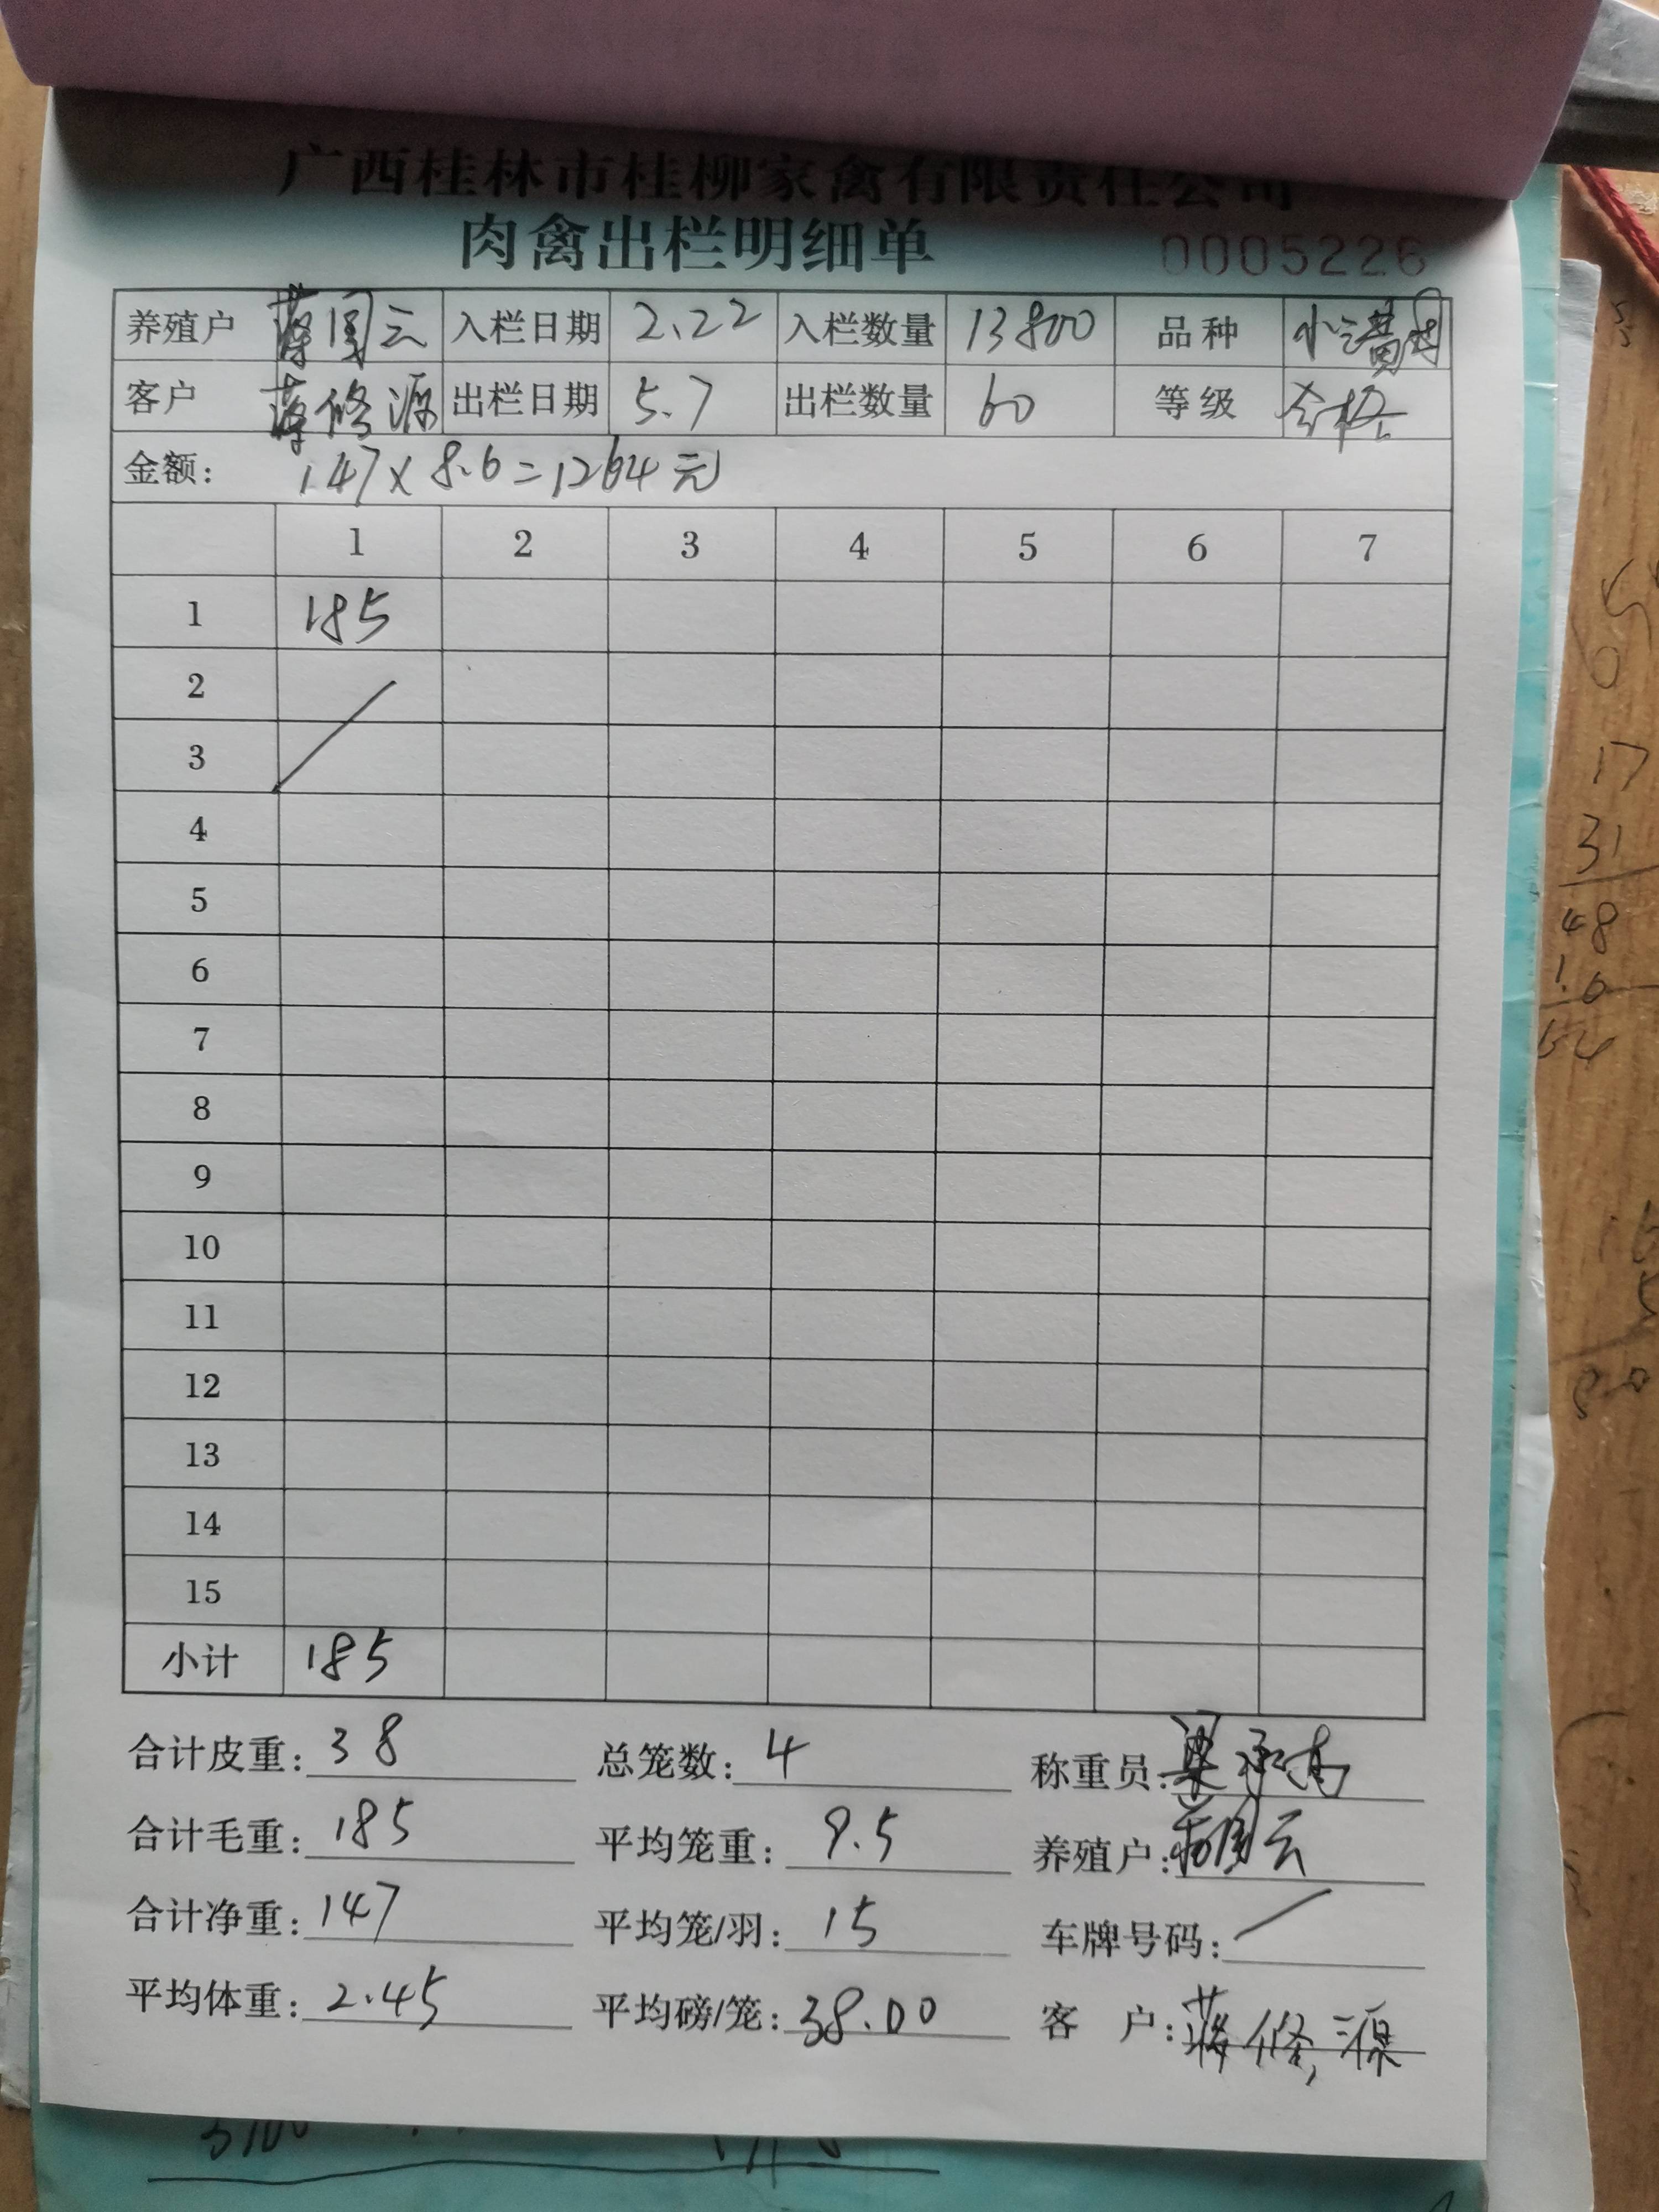 广西桂林市桂柳家禽有限责任公司
肉禽出栏明细单 0005226
养殖户 蒋周云 入栏日期 2.22 入栏数量 13800 品种 小
客户 蒋修源 出栏日期 5.7 出栏数量 60 等级 合格
金额: 147×8.6=1264元
1 2 3 4 5 6 7
1 185
2
3
4
5
6
7
8
9
10
11
12
13
14
15
小计 185
合计皮重: 38 总笼数: 4 称重员: 梁
合计毛重: 185 平均笼重: 9.5 养殖户: 蒋周云
合计净重: 147 平均笼/羽: 15 车牌号码: /
平均体重: 2.45 平均磅/笼: 38.00 客 户: 蒋修源
17
31
48
16
64